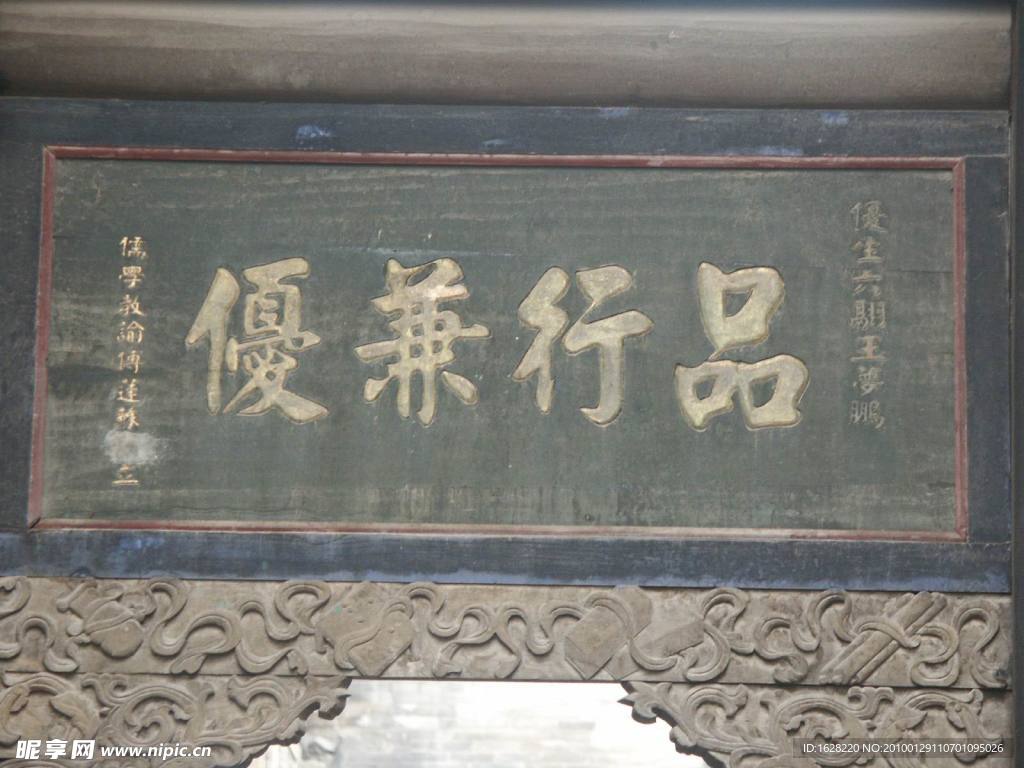 優生六翮王夢鵬
品行兼優
儒學教諭傅蓮蘇
立
昵享网 www.nipic.cn
ID:1628220 NO:20100129110701095026